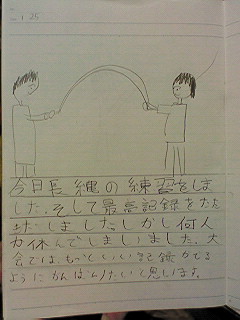 1.25
今日長縄の練習をしま
した。そして最高記録をたた
きだしましたしかし何人
か休んでしまいました。大
会では、もっといい記録がでる
ようにがんばりたいと思います。